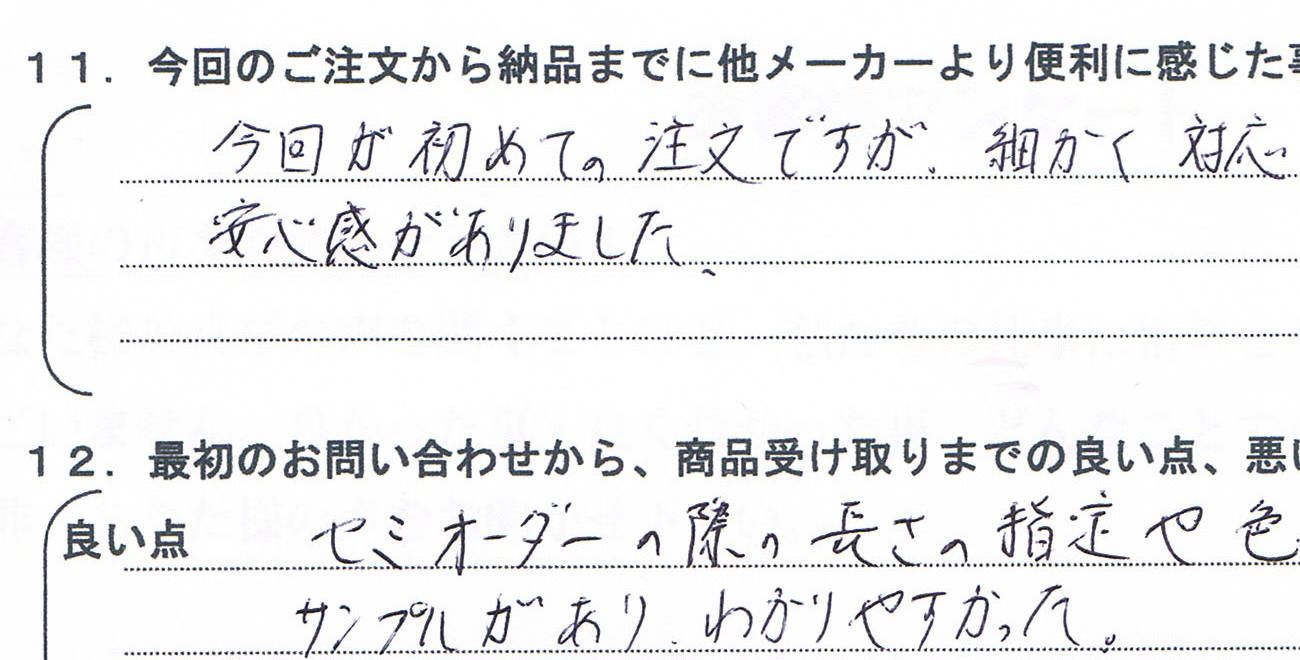 11．今回のご注文から納品までに他メーカーより便利に感じた
今回が初めての注文ですが、細かく対応
安心感がありました、
12．最初のお問い合わせから、商品受け取りまでの良い点、悪
良い点 セミオーダーの際の長さの指定や色
サンプルがあり、わかりやすかった。